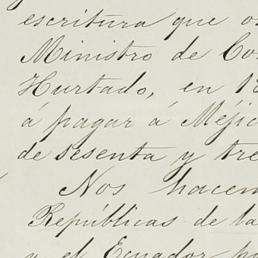 escritura que o
Ministro de Co
Hurtado, en 18
á pagar á Méjic
de sesenta y tre
Nos hacem
Repúblicas de la
y el Ecuador